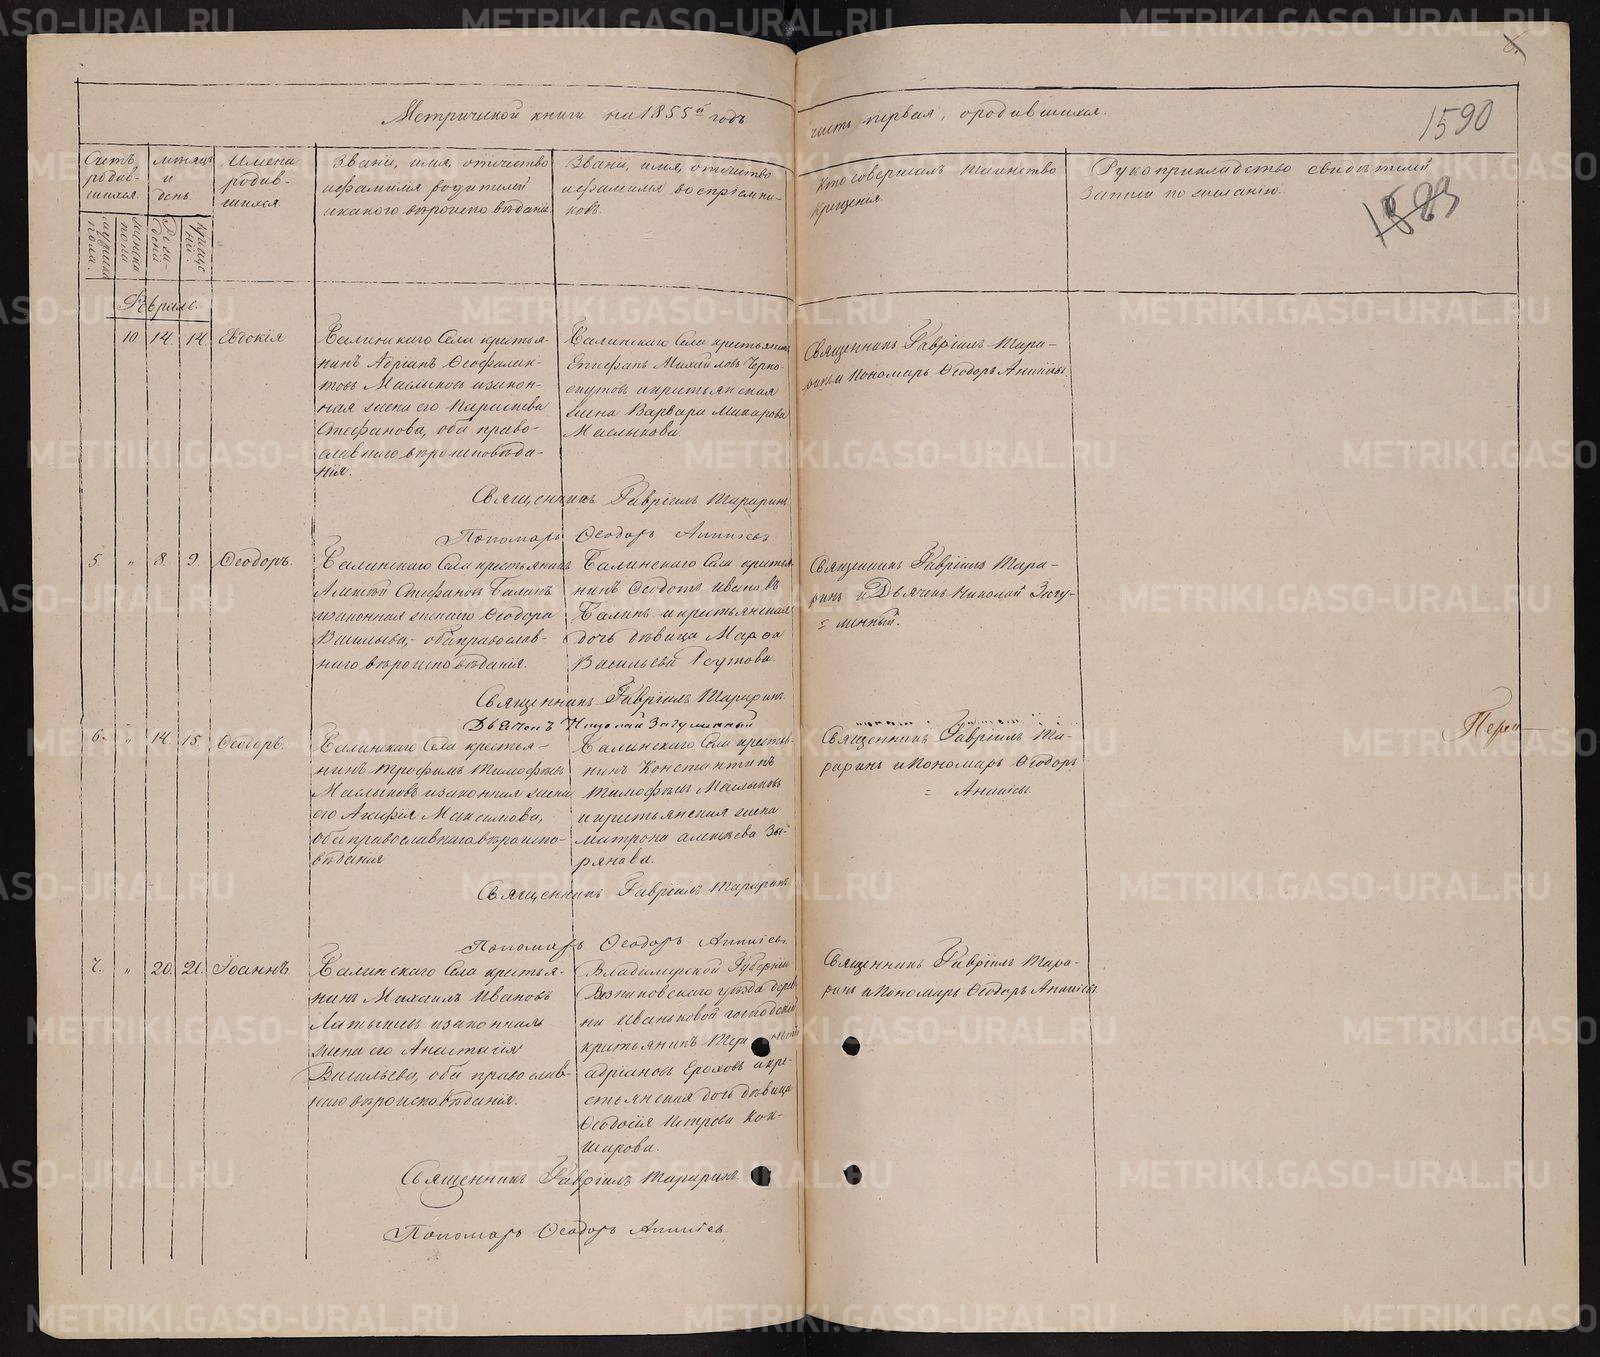 Метрической книги на 1855й годъ
часть первая, о родившихся.
1590
1589
Счетъ родив-
шихся.
мужска пола.
женска пола
месяцъ
и
день.
Рож-
дені
креще
ній.
Имена
родив-
шихся
Званіе, имя, отечество
и фамилія родителей
и какого вѣроисповѣданія
Званіе, имя, отчество
и фамилія воспріемни-
ковъ.
Кто совершалъ таинство
крещенія.
Рукоприкладство свидѣтелей
записи по желанію.
Февраль.
10 14 14 Евдокія
Балинскаго Села крестья-
нинъ Адріанъ Ѳеофилак-
товъ Маслыковъ и закон-
ная жена его Параскева
Стефанова, оба право-
славнаго вѣроисповѣда-
нія.
Балинскаго Села крестьянинъ
Стефанъ Михайловъ Черно-
скутовъ и крестьянская
жена Варвара Макарова
Маслыкова.
Священникъ Гавріилъ Тара-
ринъ и Пономарь Ѳеодоръ
Священникъ Гавріилъ Тараринъ
Пономарь Ѳеодоръ
5. " 8. 9. Ѳеодоръ.
Балинскаго Села крестьянинъ
Алексѣй Стефановъ Балинъ
и законная жена его Ѳеодора
Васильева, оба православ-
наго вѣроисповѣданія.
Балинскаго Села крестья-
нинъ Ѳедотъ Ивановъ
Балинъ и крестьянская
дочь дѣвица Марѳа
Васильева Реутова.
Священникъ Гавріилъ Тара-
ринъ и Дьячекъ Николай Загу-
= менный.
Священникъ Гавріилъ Тараринъ
Дьячекъ Николай Загуменный
6. " 14. 15. Ѳеодоръ.
Балинскаго Села крестья-
нинъ Трофимъ Тимофѣевъ
Маслыковъ и законная жена
его Агафія Максимова,
оба православнаго вѣроиспо-
вѣданія
Балинскаго Села крестья-
нинъ Константинъ
Тимофѣевъ Маслыковъ
и крестьянская жена
Матрона Алексѣева Зы-
рянова.
Священникъ Гавріилъ Та-
раринъ и Пономарь Ѳеодоръ
Священникъ Гавріилъ Тараринъ
Пономарь Ѳеодоръ
7. " 20. 21. Іоаннъ.
Балинскаго Села крестья-
нинъ Михаилъ Ивановъ
Латышевъ и законная
жена его Анастасія
Васильева, оба православ-
наго вѣроисповѣданія.
Владимирской Губерніи
Вязниковскаго уѣзда дерев-
ни Иваньковой господскій
крестьянинъ
Адріановъ Ероховъ и кре-
стьянская дочь дѣвица
Ѳеодосія Петрова Кок-
шарова.
Священникъ Гавріилъ Тара-
ринъ и Пономарь Ѳеодоръ
Священникъ Гавріилъ Тараринъ.
Пономарь Ѳеодоръ
METRIKI.GASO-URAL.RU